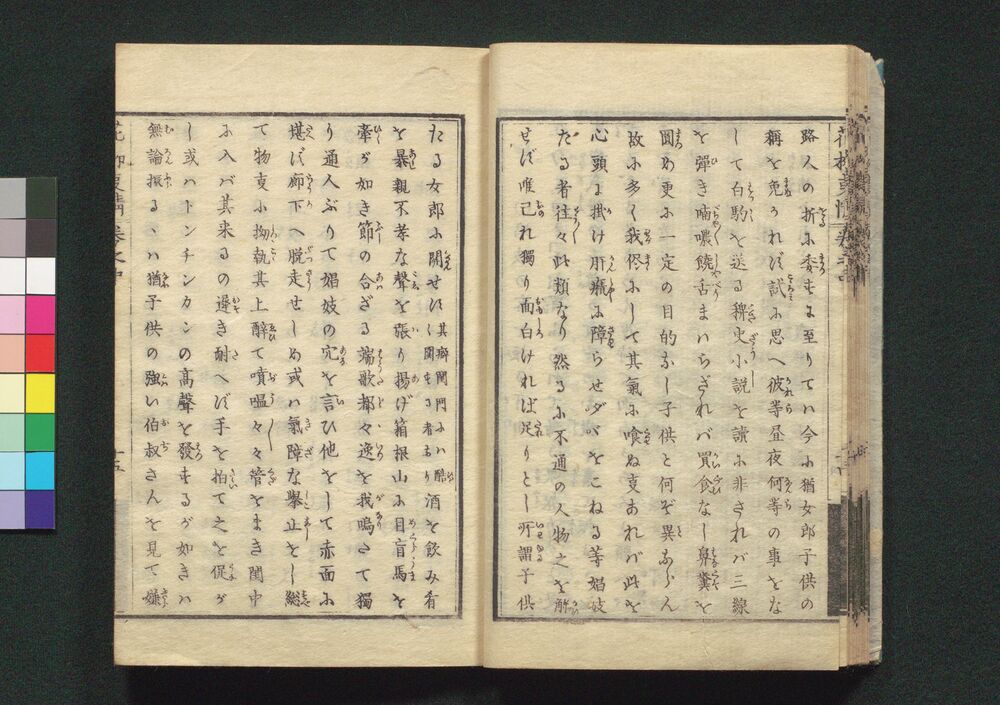 路人の折に委するに至りては今に猶女郎子供の
稱を免かれず試に思へ彼等昼夜何等の事をな
して白駒を送る稗史小説を讀に非ざれバ三線
を彈き喃噥饒舌まいらざれバ買食なし鼻糞を
圓め更に一定の目的なし子供と何ぞ異ならん
故に多く我侭にして其氣に喰ぬ事あれバ此を
心頭に掛け肝癪に障らせダバをこねる等娼妓
たる者往々此類なり然るに不通の人物之を解
せず唯己れ獨り面白けれバ足りとし所謂子供
たる女郎に關せず其癖閨門にハ關する者あり酷酒を飲み肴
を暴親不孝な聲を張り揚げ箱根山に目盲馬を
牽が如き節の合ざる端歌都々逸を我鳴さて獨
り通人ぶりて娼妓の穴を言ひ他をして赤面に
堪ず廊下へ脱走せしめ或ハ氣障な舉止をし総
て物事に拗執其上醉て噴嗢々々管をまき閨中
に入バ其来るの遅き耐へず手を拍て之を促が
し或ハトンチンカンの高聲を發するが如きハ
無論振るゝハ猶子供の強い伯叔さんを見て嫌
花柳事情 卷之中
十五